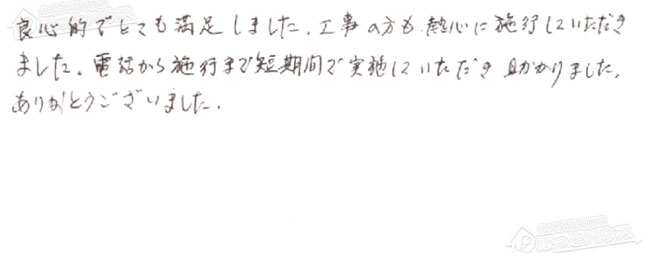 良心的でとても満足しました。工事の方も熱心に施行していただき
ました。電話から施行まで短期間で実施していただき助かりました。
ありがとうございました。